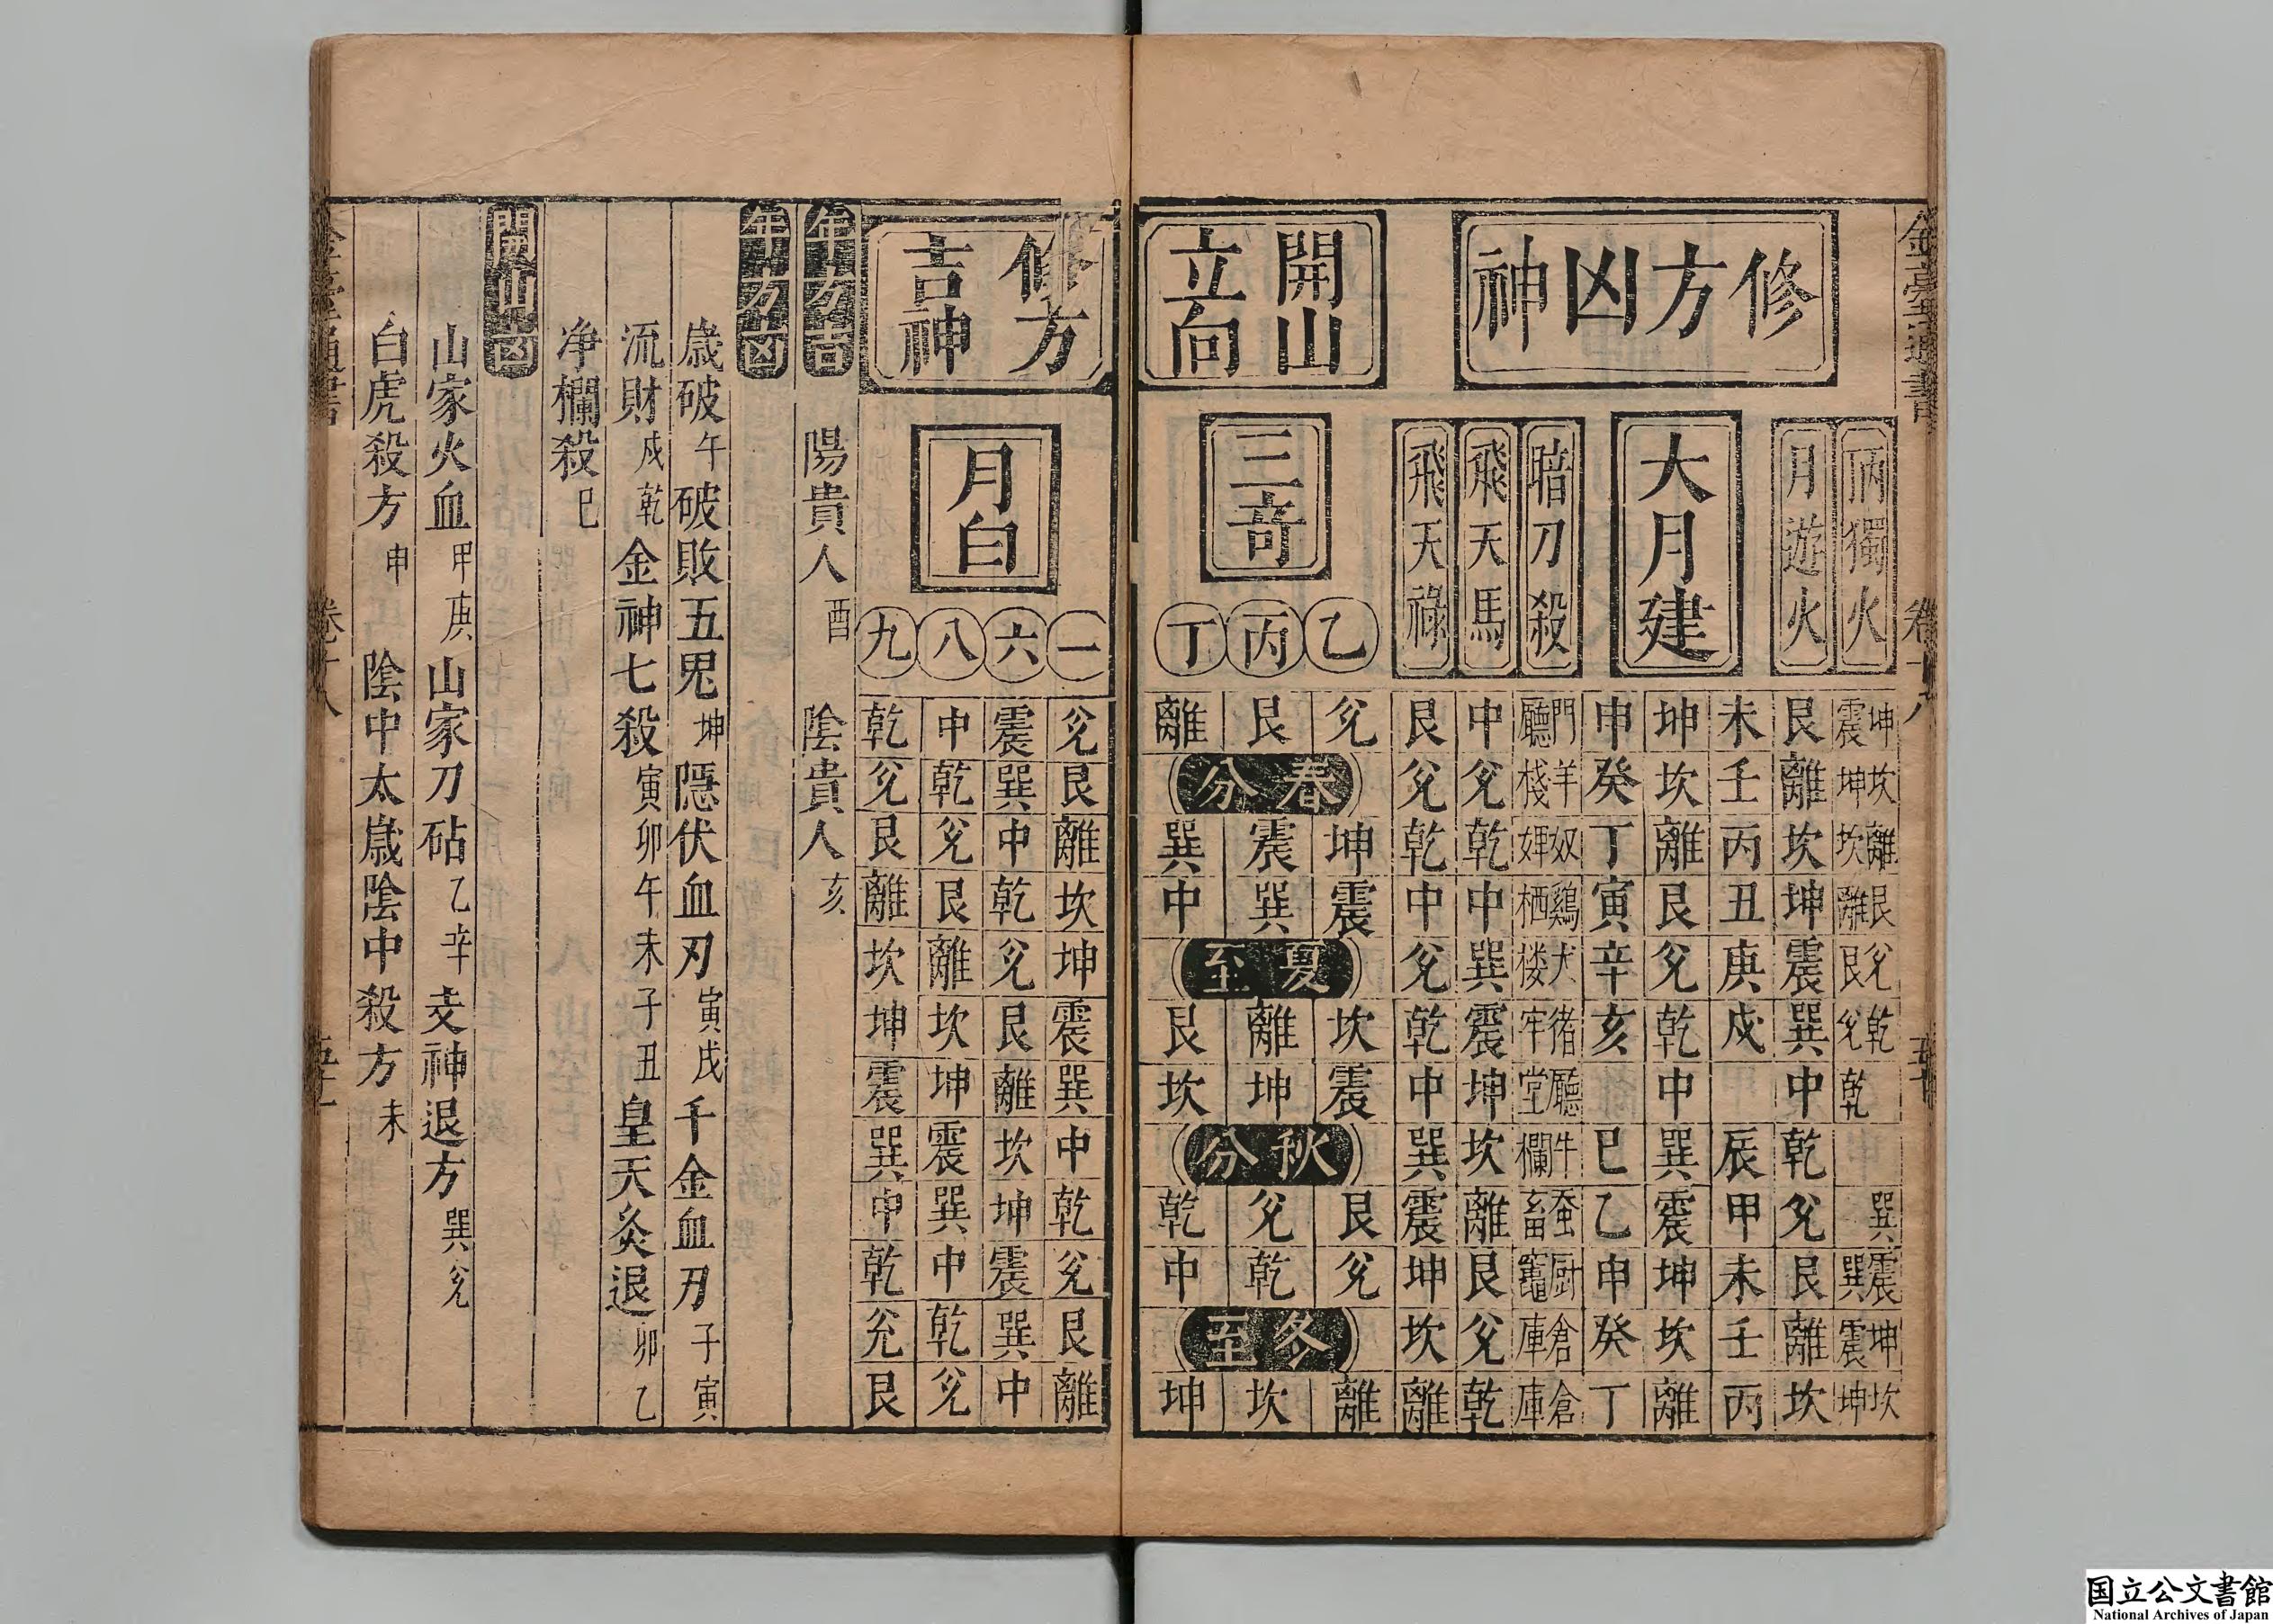 修方凶神
丙獨火
坤震 坎坤 離坎 艮離 兊艮 乾兊 乾 巽 震巽 坤震 坎坤
月遊火
艮離坎坤震巽中乾兊艮離坎
大月建
未壬丙丑庚戍 辰甲未壬丙
坤坎離艮兊乾中巽震坤坎離
申癸丁寅辛亥 巳乙申癸丁
暗刀殺
門廳 羊棧 奴婢 鷄栖 犬楼 猪牢 廳堂 牛欄 蚕畜 厨竈 倉庫 倉庫
飛天馬
中兊乾中巽震坤坎離艮兊乾
飛天祿
艮兊乾中兊乾中巽震坤坎離
開山
立向
三奇
乙
兊 坤震 坎震 艮兊 離
丙
艮 震巽 離坤 兊乾 坎
丁
離 巽中 艮坎 乾中 坤
春分
夏至
秋分
冬至
修方
吉神
月白
一
兊艮離坎坤震巽中乾兊艮離
六
震巽中乾兊艮離坎坤震巽中
八
中乾兊艮離坎坤震巽中乾兊
九
乾兊艮離坎坤震巽中乾兊艮
年方吉
陽貴人酉 陰貴人亥
年方凶
歲破午 破敗五鬼坤 隱伏血刃寅戌 千金血刃子寅
流財戍乾 金神七殺寅卯午未子丑 皇天灸退卯乙
净欄殺巳
開山凶
山家火血甲庚 山家刀砧乙辛 支神退方巽兊
白虎殺方申 陰中太歲陰中殺方未
卷十八
国立公文書館
National Archives of Japan